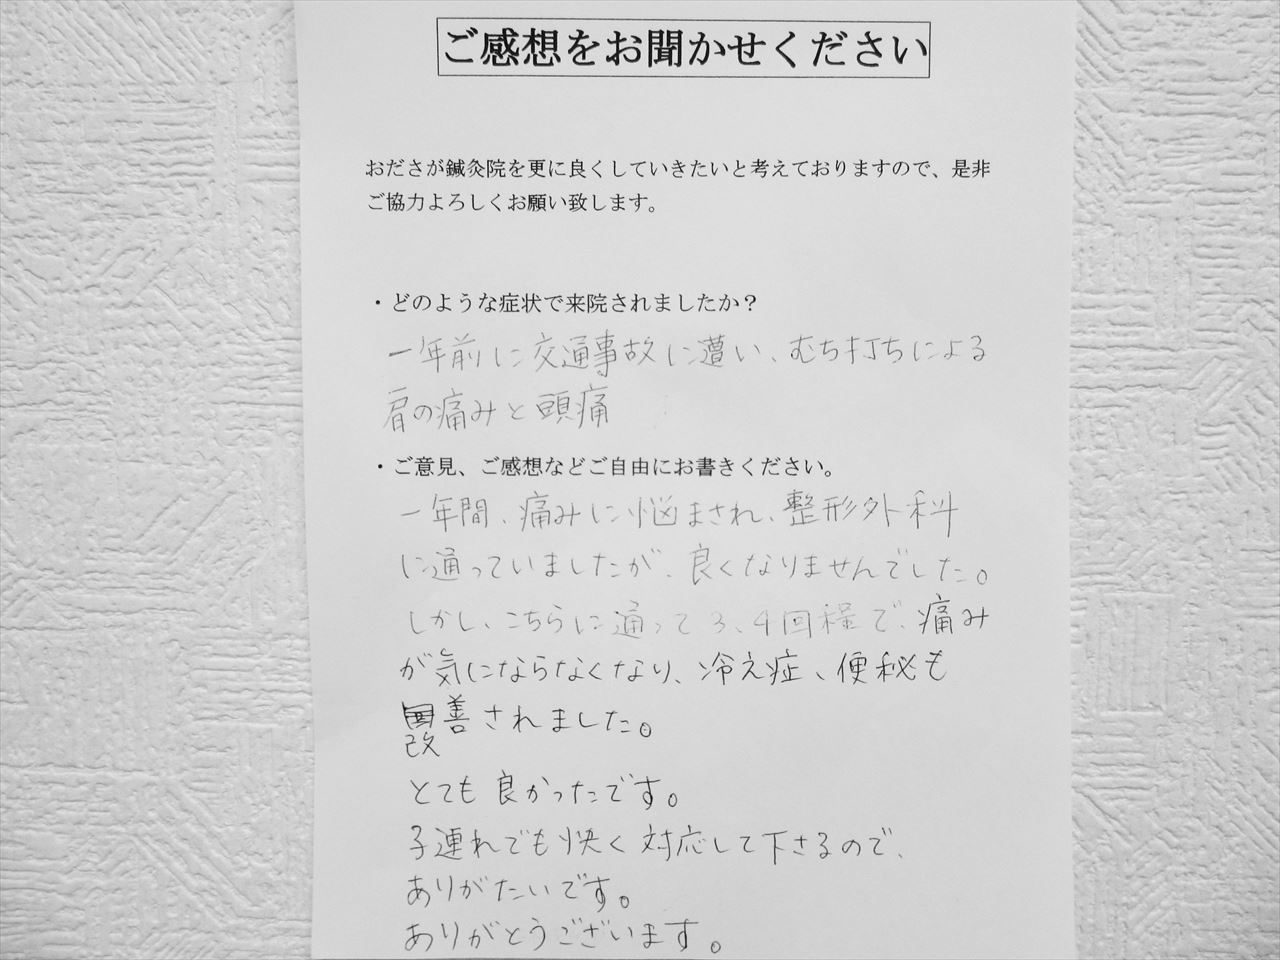 ご感想をお聞かせください
おださが鍼灸院を更に良くしていきたいと考えておりますので、是非
ご協力よろしくお願い致します。
・どのような症状で来院されましたか？
一年前に交通事故に遭い、むち打ちによる
肩の痛みと頭痛
・ご意見、ご感想などご自由にお書きください。
一年間、痛みに悩まされ、整形外科
に通っていましたが、良くなりませんでした。
しかし、こちらに通って3、4回程で、痛み
が気にならなくなり、冷え症、便秘も
改善されました。
とても良かったです。
子連れでも快く対応して下さるので、
ありがたいです。
ありがとうございます。